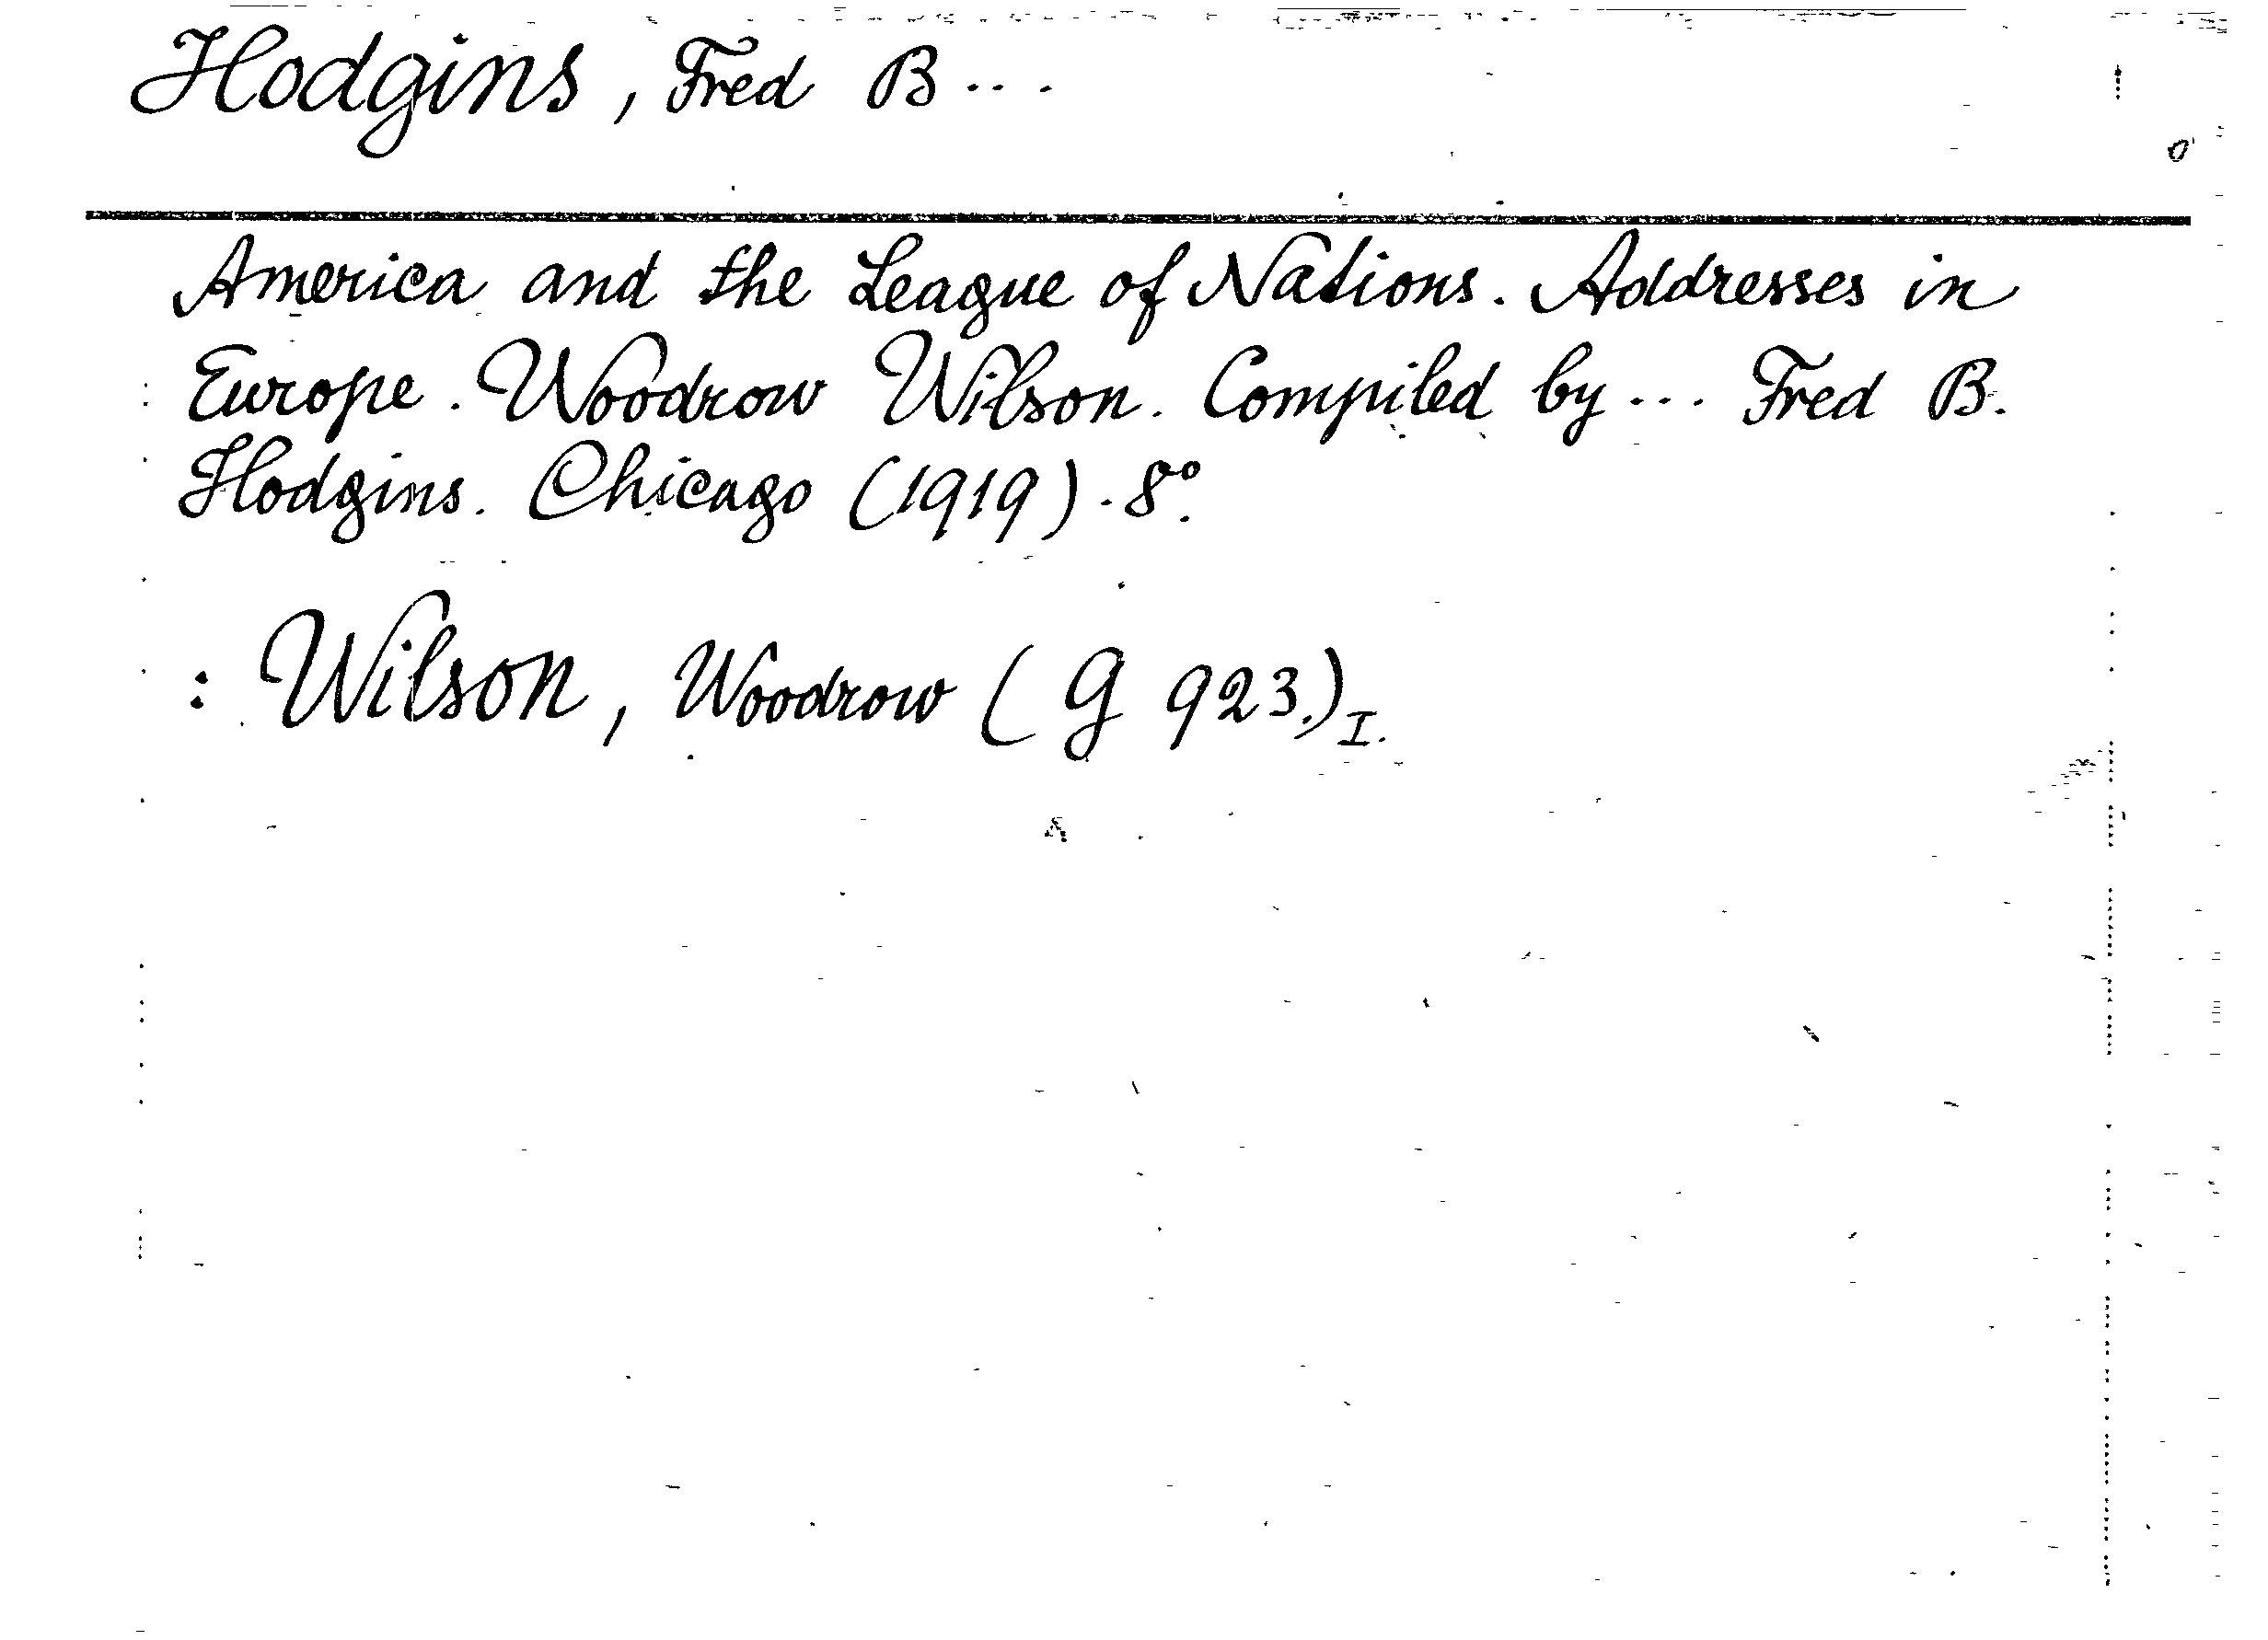 Hodgins, Fred B...
America and the League of Nations. Addresses in
Europe. Woodrow Wilson. Compiled by ... Fred B.
Hodgins. Chicago (1919). 8°.
: Wilson, Woodrow (G 923.) I.